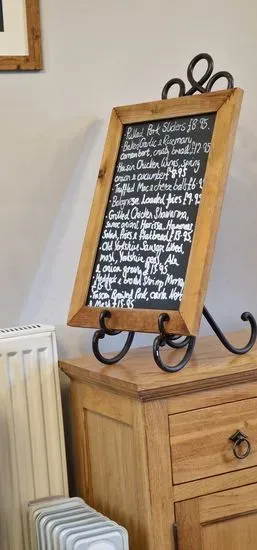 • Pulled Pork Sliders £8.95
• Baked Garlic & Rosemary
camembert, crusty bread £12.95
Hoisin Chicken Wings, spring
onion & cucumber £8.95
• Truffled Mac & cheese balls £6.95
• Bolognese Loaded fries £9.95
• Grilled Chicken Shawarma,
Harissa, Hummus
Salad, fries & flatbread £15.95
• Old Yorkshire Sausage
mash, Yorkshire pud, Ale
& onion gravy £15.95
• Haddock & Shrimp Mornay
£15
Pork,
Mash £15.95